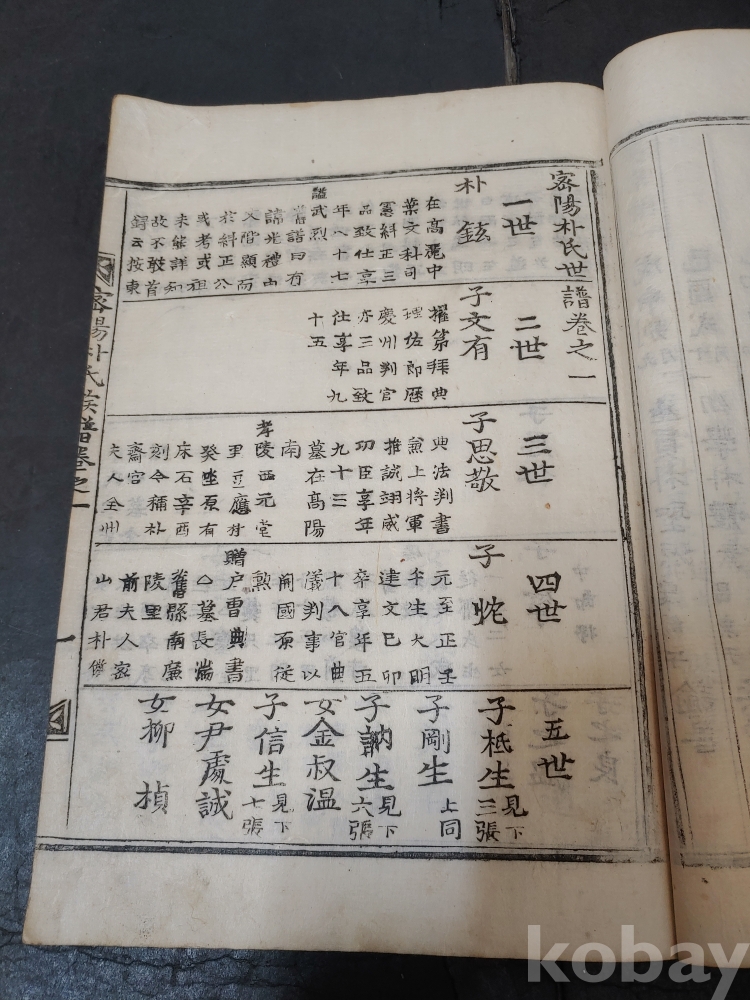 密陽朴氏世譜卷之一
一世
朴鉉
在高麗中
葉文科司
憲糾正三
品致仕享
年八十七
謚武烈
舊譜曰有
請光禮由
文階顯而
於糾正公
或考或祖
未能詳知
故不敢首
錄云按東
二世
子文有
擢第拜典
理佐郎歷
慶州判官
亦三品致
仕享年九
十五
三世
子思敬
典法判書
兼上將軍
推誠翊威
功臣享年
九十三
墓在高陽
南
孝陵西元堂
里豆應村
癸坐原有
床石辛酉
刻令稱朴
齋宮
夫人全州
四世
子忱
元至正壬
午生大明
建文己卯
卒享年五
十八官典
儀判事以
開國原從
勲
贈户曹典書
公墓長湍
舊縣南廉
陵里
前夫人密
山君朴
五世
子柢生 見下三張
子剛生 上同
子訥生 見下六張
女金叔溫
子信生 見下七張
女尹處誠
女柳楨
密陽朴氏族譜卷之一
一
kobay